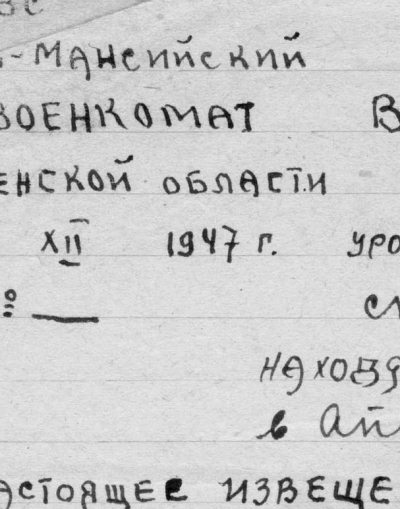 -МАНСИЙСКИЙ
ВОЕНКОМАТ В
ЕНСКОЙ ОБЛАСТИ
XII 1947 г. УРО
НАХОДЯ
в Ай
АСТОЯЩЕЕ ИЗВЕЩЕ